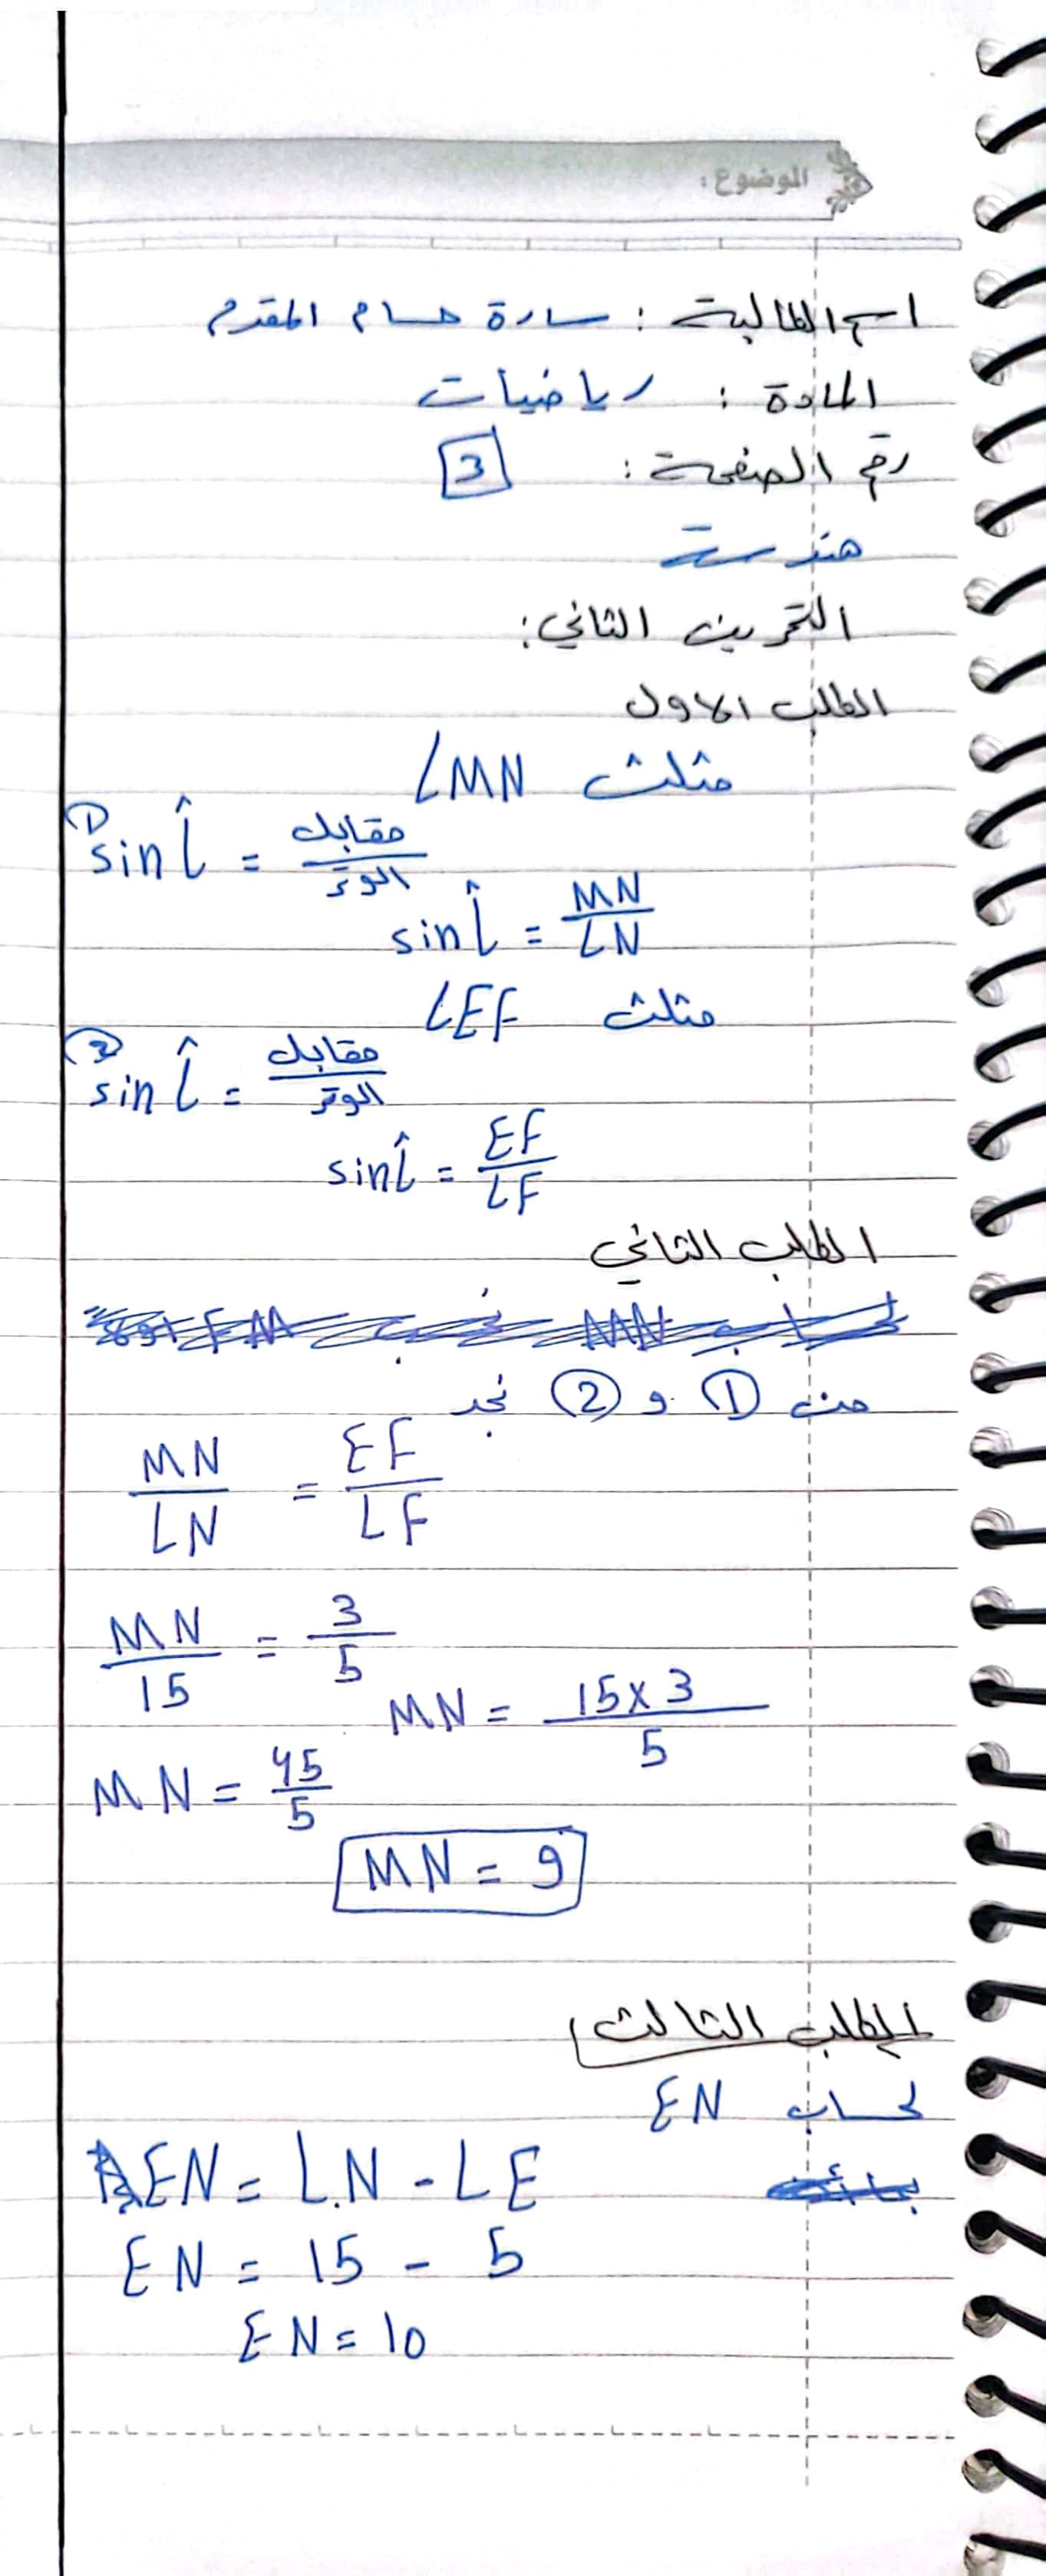 الموضوع:
اسم الطالبة : سارة حسام المقدم
المادة : رياضيات
رقم الصفحة : 3
هندسة
التمرين الثاني:
الطلب الاول
مثلث LMN
① sin L̂ = مقابل / الوتر
sin L̂ = MN / LN
مثلث LEF
② sin L̂ = مقابل / الوتر
sin L̂ = EF / LF
الطلب الثاني
من ① و ② نجد
MN / LN = EF / LF
MN / 15 = 3 / 5
MN = 15 x 3 / 5
MN = 45 / 5
MN = 9
الطلب الثالث
لحساب EN
EN = LN - LE
EN = 15 - 5
EN = 10